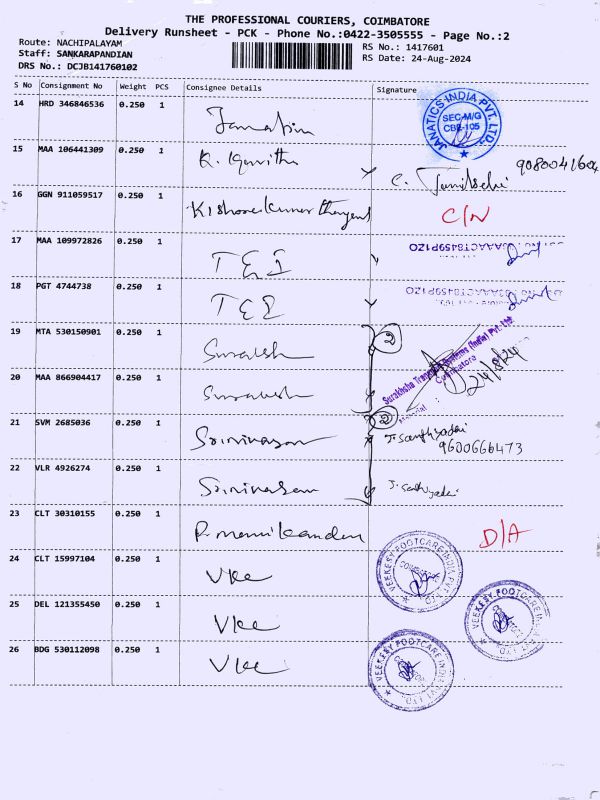 THE PROFESSIONAL COURIERS, COIMBATORE
Delivery Runsheet - PCK - Phone No.:0422-3505555 - Page No.:2
Route: NACHIPALAYAM
Staff: SANKARAPANDIAN
DRS No.: DCJB141760102
RS No.: 1417601
RS Date: 24-Aug-2024
S No Consignment No Weight PCS Consignee Details Signature
14 HRD 346846536 0.250 1
JANATICS INDIA PVT. LTD.
SEC-M/G
CBE-105
15 MAA 106441309 0.250 1 K. Kavitha
9080041604
16 GGN 911059517 0.250 1 C/N
17 MAA 109972826 0.250 1 TEI
18 PGT 4744738 0.250 1 TEE
19 MTA 530150901 0.250 1 Suresh 2
24/8/24
20 MAA 866904417 0.250 1 Suresh
21 SVM 2685036 0.250 1 Srinivasan 2
9600666473
22 VLR 4926274 0.250 1 Srinivasan
23 CLT 30310155 0.250 1 P. manikandan D/A
24 CLT 15997104 0.250 1 Vkc
VEEKESY FOOTCARE INDIA PVT LTD
25 DEL 121355450 0.250 1 Vkc
VEEKESY FOOTCARE INDIA PVT LTD
26 BDG 530112098 0.250 1 Vkc
VEEKESY FOOTCARE INDIA PVT LTD